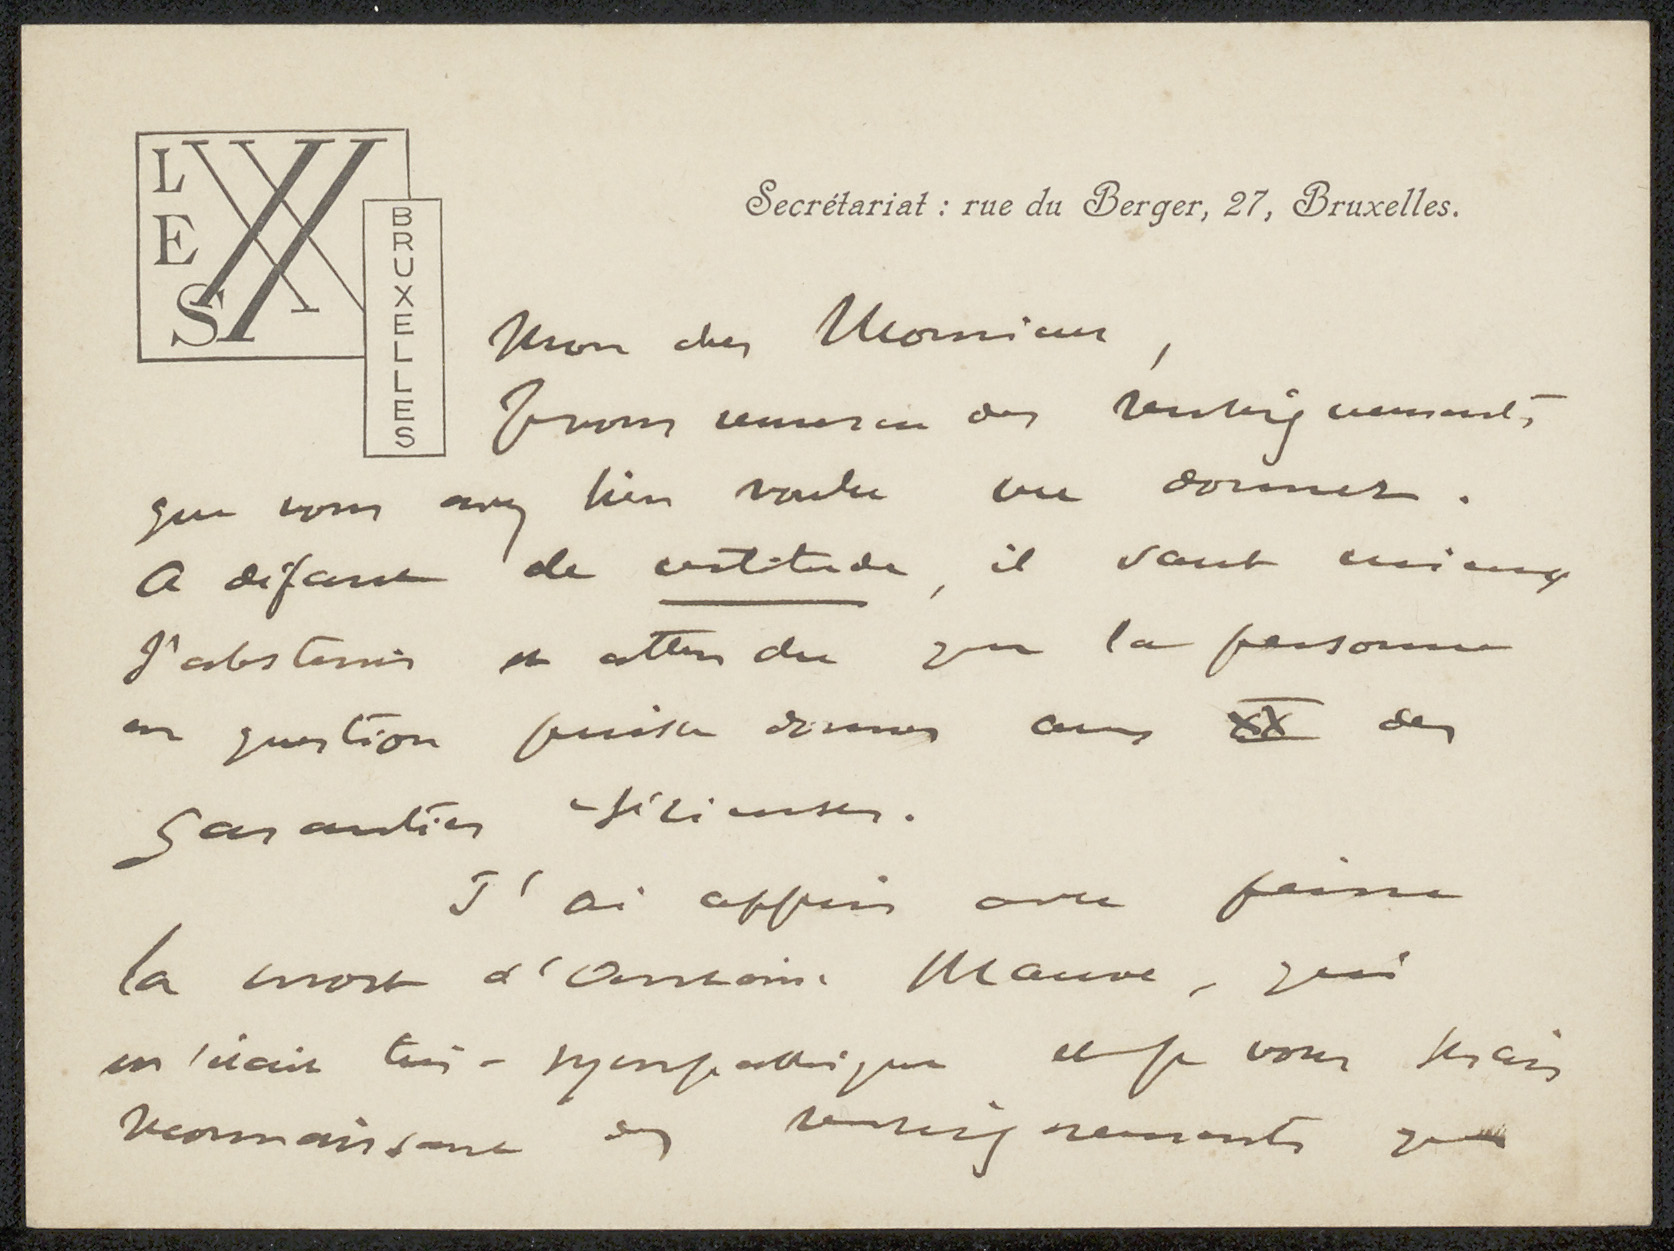 LES XX
BRUXELLES
Secrétariat : rue du Berger, 27, Bruxelles.
Mon cher Monsieur,
Je vous remercie des renseignements
que vous avez bien voulu me donner.
A défaut de certitude, il vaut mieux
s'abstenir et attendre que la personne
en question puisse donner aux XX des
garanties sérieuses.
J'ai appris avec peine
la mort d'Antoine Mauve, qui
m'était très-sympathique et je vous serais
reconnaissant des renseignements que